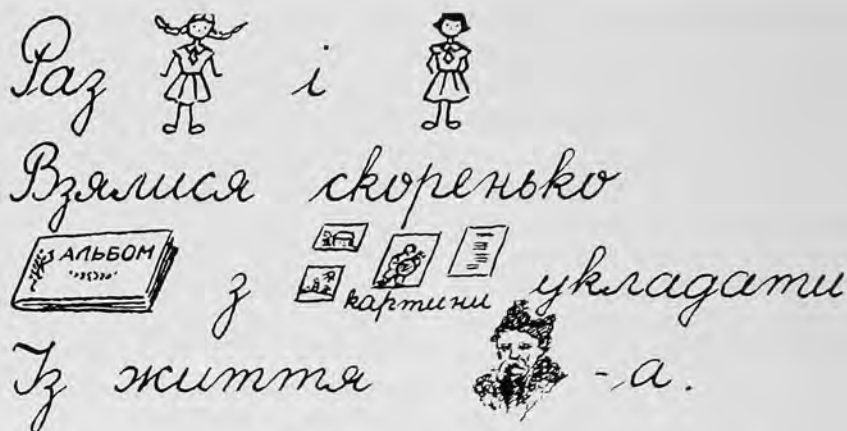 Раз і
Взялися скоренько
АЛЬБОМ
з картини укладати
Із життя -а.